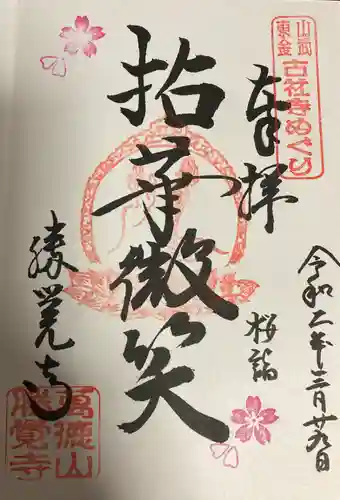 山武
東金
古社寺めぐり
奉拝
令和二年三月廿九日
桜詣
拈華微笑
勝覚寺
萬德山
勝覺寺